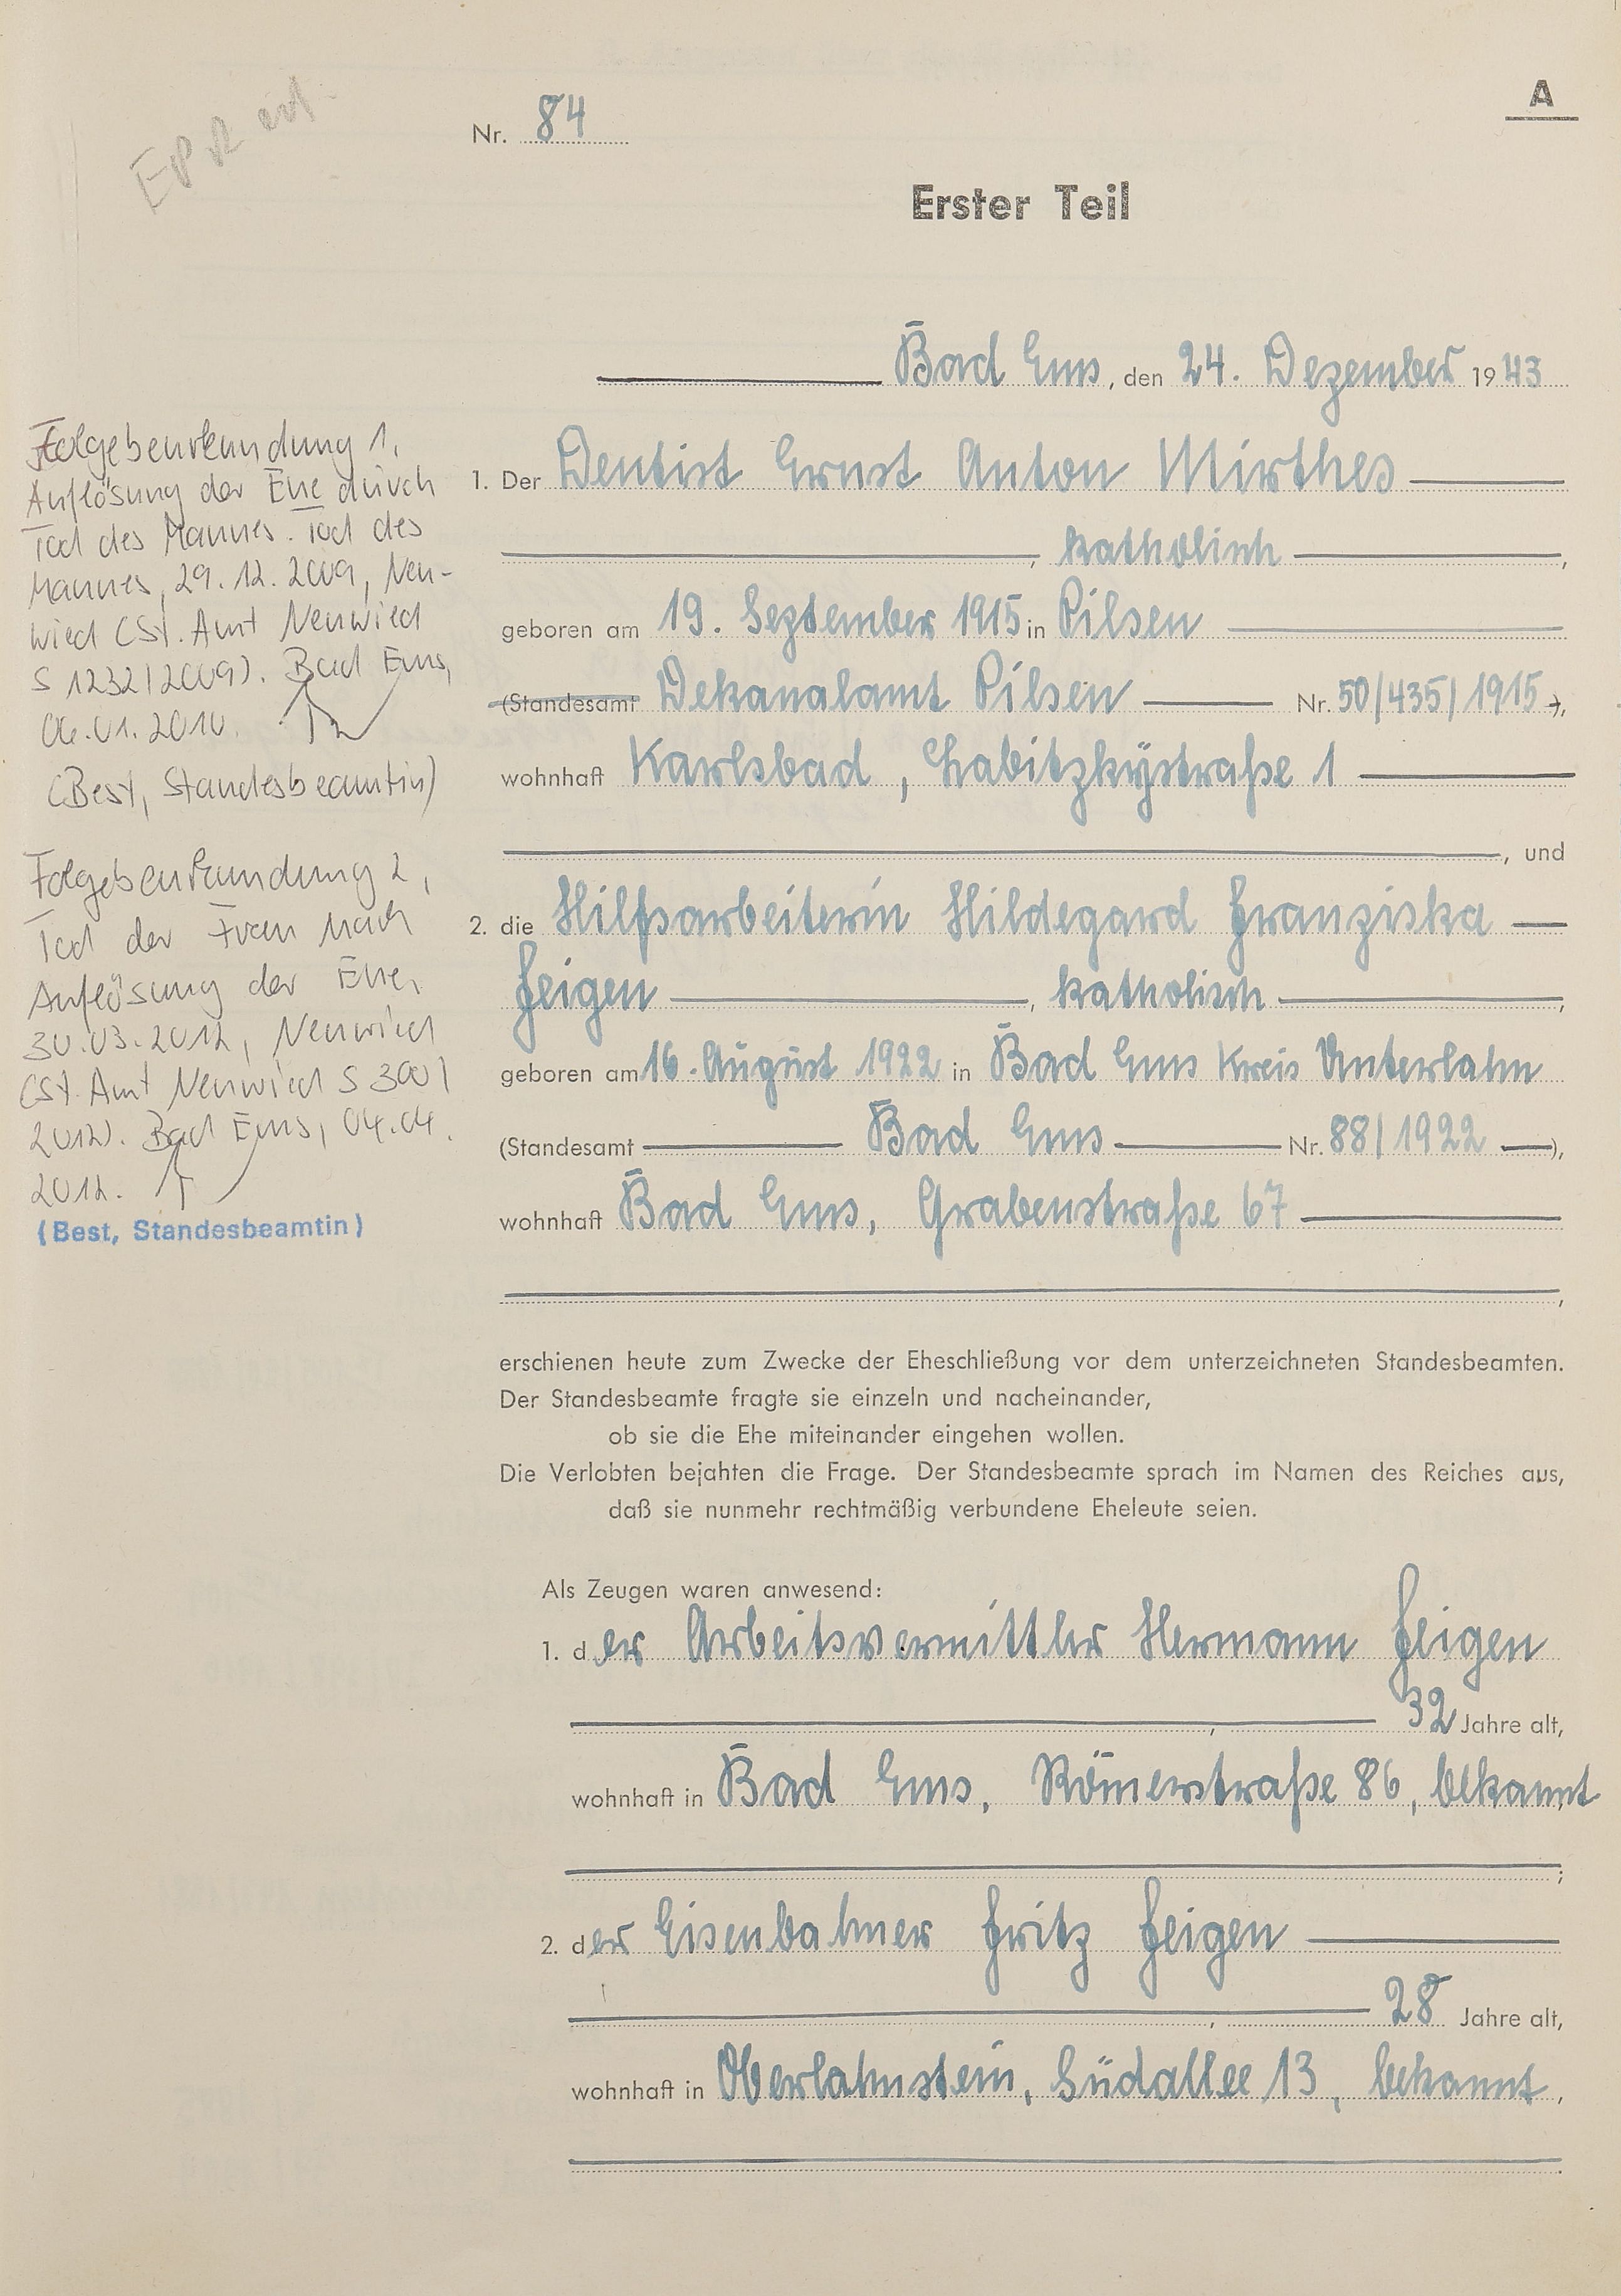 EPR erf.
A
Nr. 84
Erster Teil
Bad Ems, den 24. Dezember 1943
1. Der Dentist Ernst Anton Mirthes
, katholisch,
geboren am 19. September 1915 in Pilsen
(Standesamt Dekanalamt Pilsen Nr. 50/435/1915),
wohnhaft Karlsbad, Labitzkystraße 1
, und
2. die Hilfsarbeiterin Hildegard Franziska
Feigen, katholisch,
geboren am 16. August 1922 in Bad Ems Kreis Unterlahn
(Standesamt Bad Ems Nr. 88/1922),
wohnhaft Bad Ems, Grabenstraße 67
,
erschienen heute zum Zwecke der Eheschließung vor dem unterzeichneten Standesbeamten.
Der Standesbeamte fragte sie einzeln und nacheinander,
ob sie die Ehe miteinander eingehen wollen.
Die Verlobten bejahten die Frage. Der Standesbeamte sprach im Namen des Reiches aus,
daß sie nunmehr rechtmäßig verbundene Eheleute seien.
Als Zeugen waren anwesend:
1. der Arbeitsvermittler Hermann Feigen
, 32 Jahre alt,
wohnhaft in Bad Ems, Römerstraße 86, bekannt
;
2. der Eisenbahner Fritz Feigen
, 28 Jahre alt,
wohnhaft in Oberlahnstein, Südallee 13, bekannt,
.
Folgebeurkundung 1,
Auflösung der Ehe durch
Tod des Mannes. Tod des
Mannes, 29.12.2009, Neu-
wied (St. Amt Neuwied
S 1232/2009). Bad Ems,
06.01.2010.
(Best, Standesbeamtin)
Folgebeurkundung 2,
Tod der Frau nach
Auflösung der Ehe,
30.03.2012, Neuwied
(St. Amt Neuwied S 300/
2012). Bad Ems, 04.04.
2012.
(Best, Standesbeamtin)